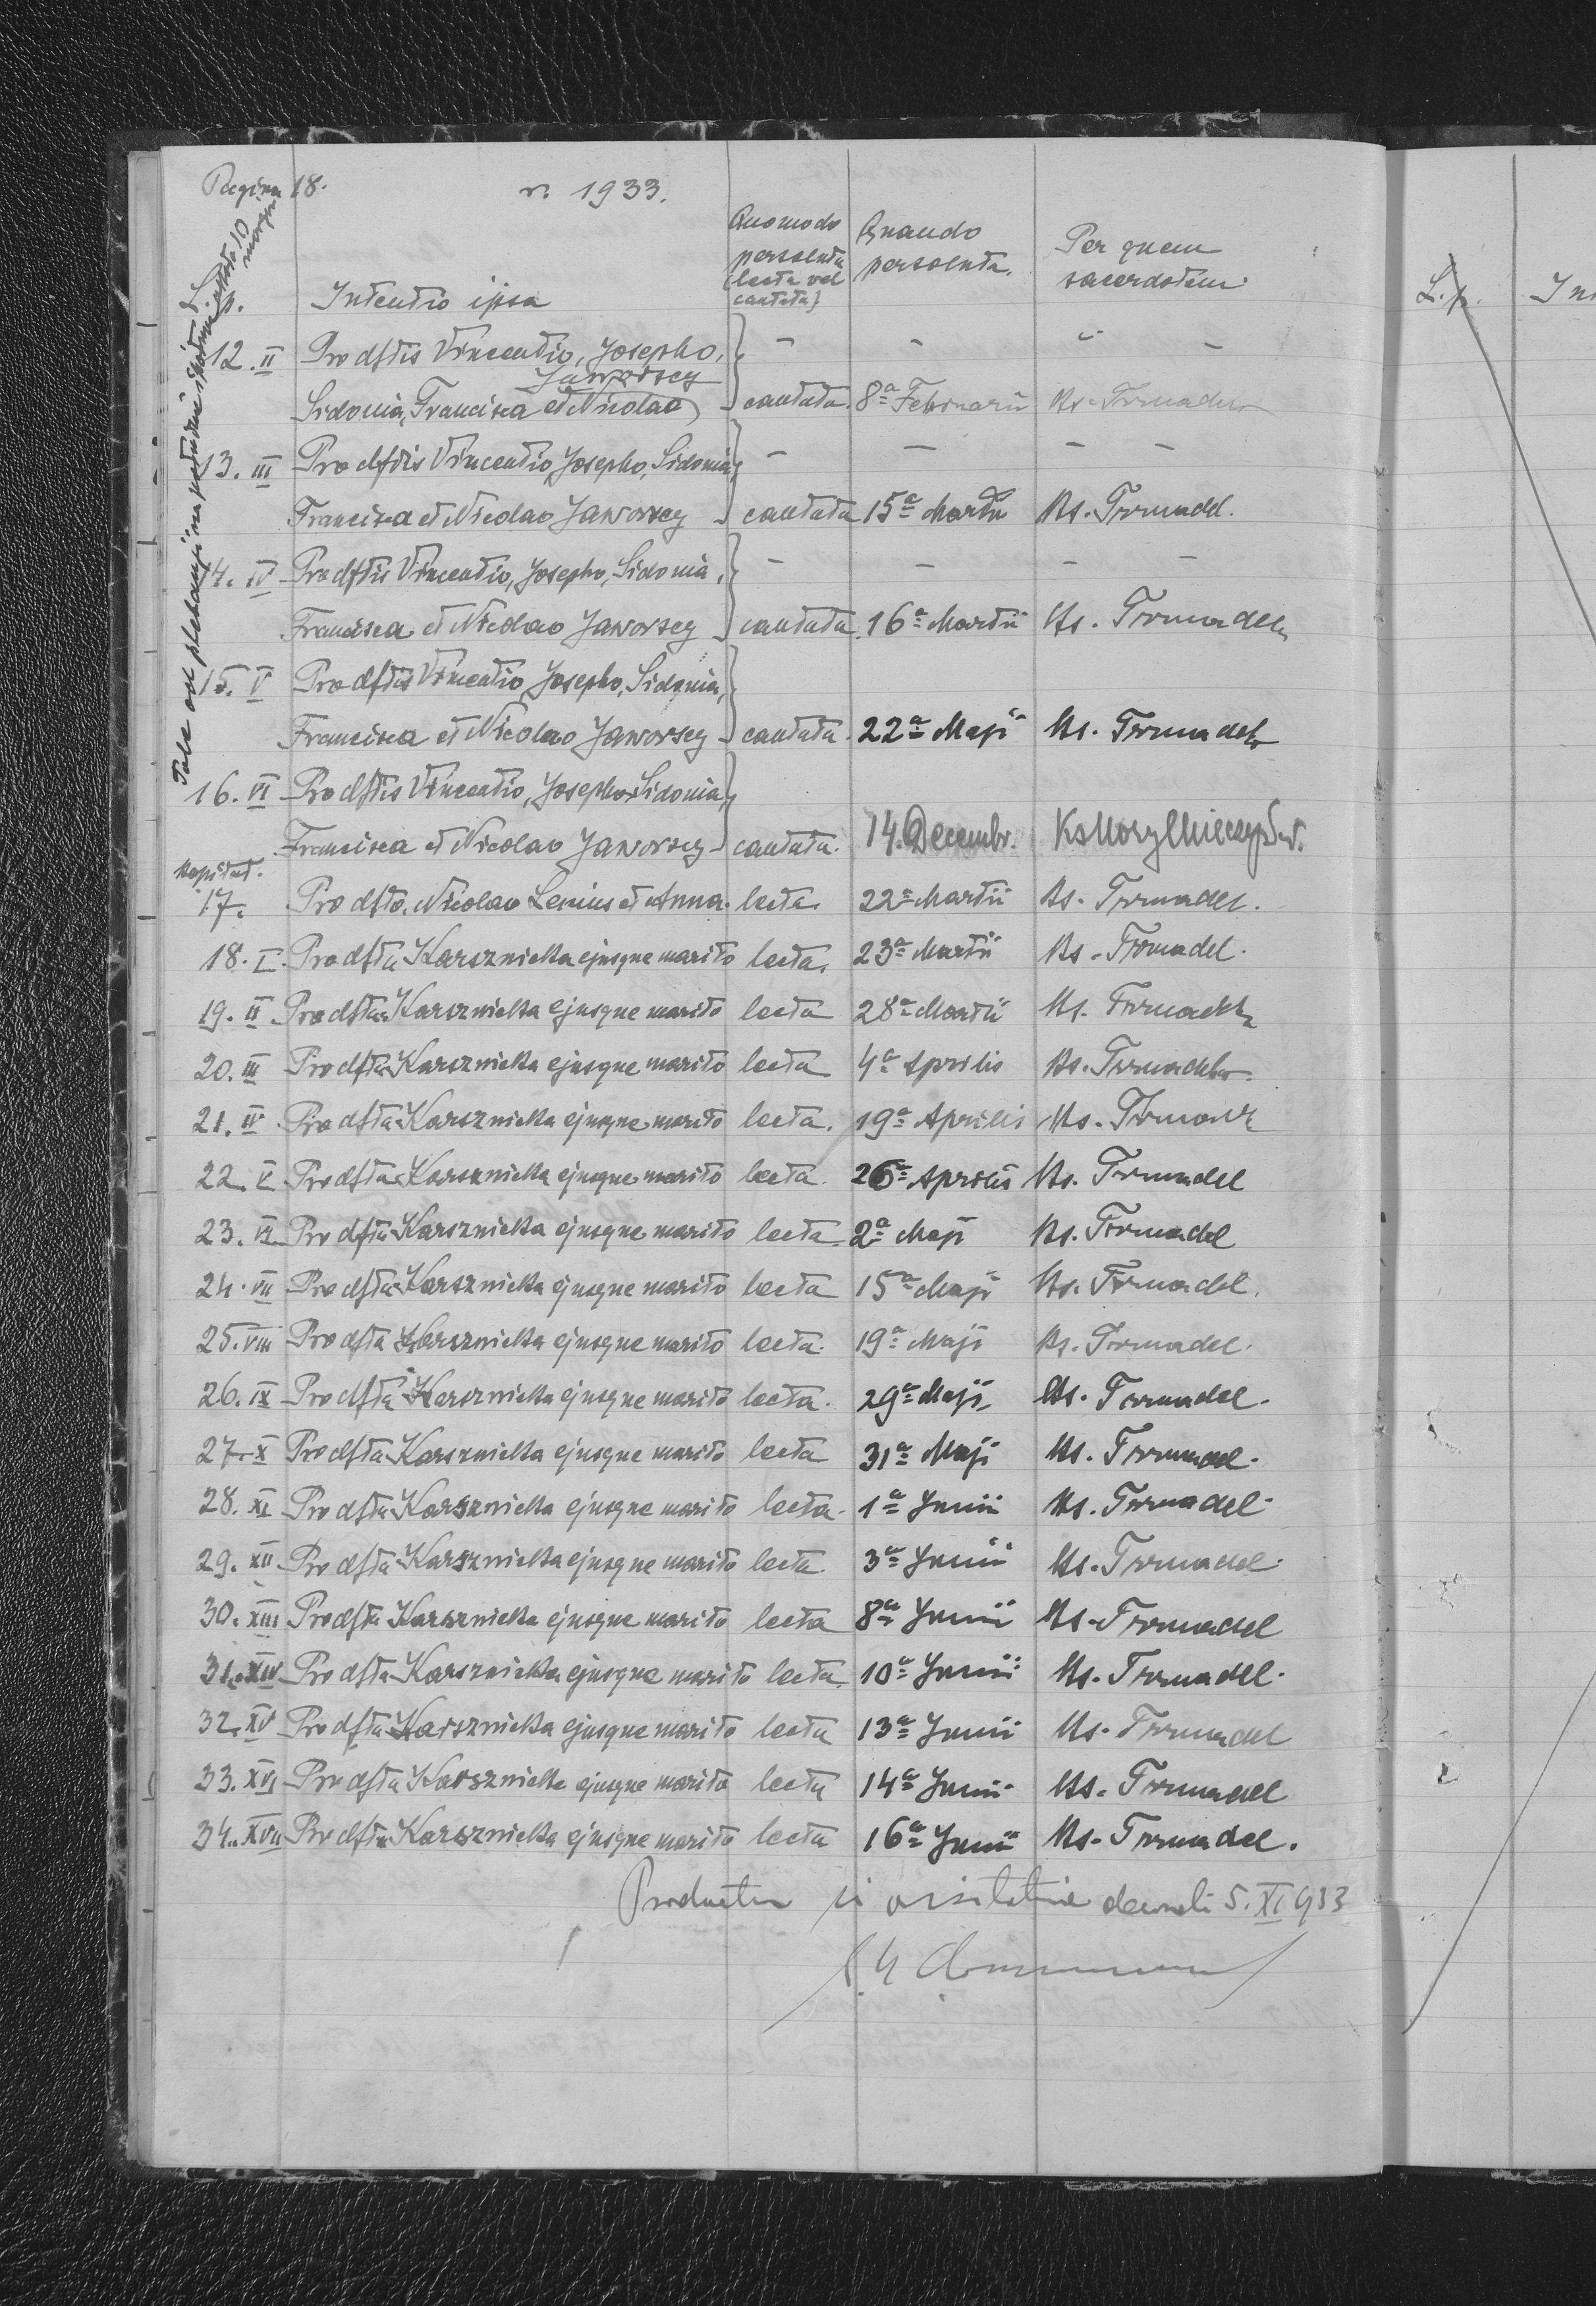 Pagina 18. r. 1933.
L. p. Intentio ipsa Quomodo persoluta (lecta vel cantata) Quando persoluta. Per quem sacerdotem
Pole od plebanji na południe
12. II Pro dftis Vincentio, Josepho, } — — — —
Jaworscy
Sidonia, Francisca et Nicolao } cantata. 8ª Februarii Ks. Tomadel
13. III Pro dftis Vincentio, Josepho, Sidonia, } — — — —
Francisca et Nicolao Jaworscy } cantata 15ª Martii Ks. Tomadel.
14. IV Pro dftis Vincentio, Josepho, Sidonia, } — — — —
Francisca et Nicolao Jaworscy } cantata. 16ª Martii Ks. Tomadel
15. V Pro dftis Vincentio, Josepho, Sidonia, }
Francisca et Nicolao Jaworscy } cantata. 22ª Maji Ks. Tomadel
16. VI Pro dftis Vincentio, Josepho, Sidonia, }
Francisca et Nicolao Jaworscy } cantata. 14. Decembr.
Kapitał.
17. Pro dfto. Nicolao et Anna. lecta. 22ª Martii Ks. Tomadel.
18. I. Pro dfta Karsznicka ejusque marito lecta. 23ª Martii Ks. Tomadel.
19. II Pro dfta Karsznicka ejusque marito lecta 28ª Martii Ks. Tomadel
20. III Pro dfta Karsznicka ejusque marito lecta 4ª Aprilis Ks. Tomadel
21. IV Pro dfta Karsznicka ejusque marito lecta. 19ª Aprilis Ks. Tomadel
22. V Pro dfta Karsznicka ejusque marito lecta. 26ª Aprilis Ks. Tomadel
23. VI Pro dfta Karsznicka ejusque marito lecta. 2ª Maji Ks. Tomadel
24. VII Pro dfta Karsznicka ejusque marito lecta 15ª Maji Ks. Tomadel.
25. VIII Pro dfta Karsznicka ejusque marito lecta. 19ª Maji Ks. Tomadel.
26. IX Pro dfta Karsznicka ejusque marito lecta. 29ª Maji Ks. Tomadel.
27. X Pro dfta Karsznicka ejusque marito lecta 31ª Maji Ks. Tomadel.
28. XI Pro dfta Karsznicka ejusque marito lecta. 1ª Junii Ks. Tomadel
29. XII Pro dfta Karsznicka ejusque marito lecta. 3ª Junii Ks. Tomadel
30. XIII Pro dfta Karsznicka ejusque marito lecta 8ª Junii Ks. Tomadel
31. XIV Pro dfta Karsznicka ejusque marito lecta. 10ª Junii Ks. Tomadel.
32. XV Pro dfta Karsznicka ejusque marito lecta 13ª Junii Ks. Tomadel
33. XVI Pro dfta Karsznicka ejusque marito lecta 14ª Junii Ks. Tomadel
34. XVII Pro dfta Karsznicka ejusque marito lecta 16ª Junii Ks. Tomadel.
5. XI 933
L. p. In